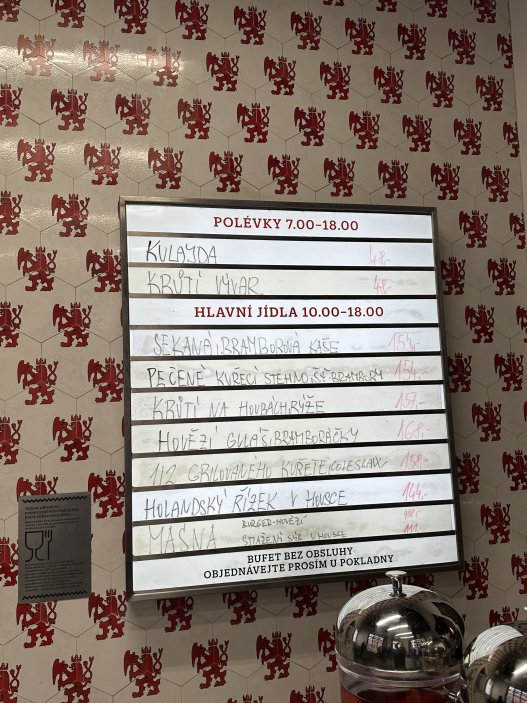 POLÉVKY 7.00–18.00
KULAJDA 48,-
KRŮTÍ VÝVAR 48,-
HLAVNÍ JÍDLA 10.00–18.00
SEKANÁ, BRAMBOROVÁ KAŠE 154,-
PEČENÉ KUŘECÍ STEHNO, ŠŤ. BRAMBORY 154,-
KRŮTÍ NA HOUBÁCH, RÝŽE
HOVĚZÍ GULÁŠ, BRAMBORÁČKY 168,-
1/2 GRILOVANÉHO KUŘETE, COLESLAW 158,-
HOLANDSKÝ ŘÍZEK V HOUSCE 144,-
MASNA BURGER - HOVĚZÍ
SMAŽENÝ SÝR V HOUSCE
BUFET BEZ OBSLUHY
OBJEDNÁVEJTE PROSÍM U POKLADNY